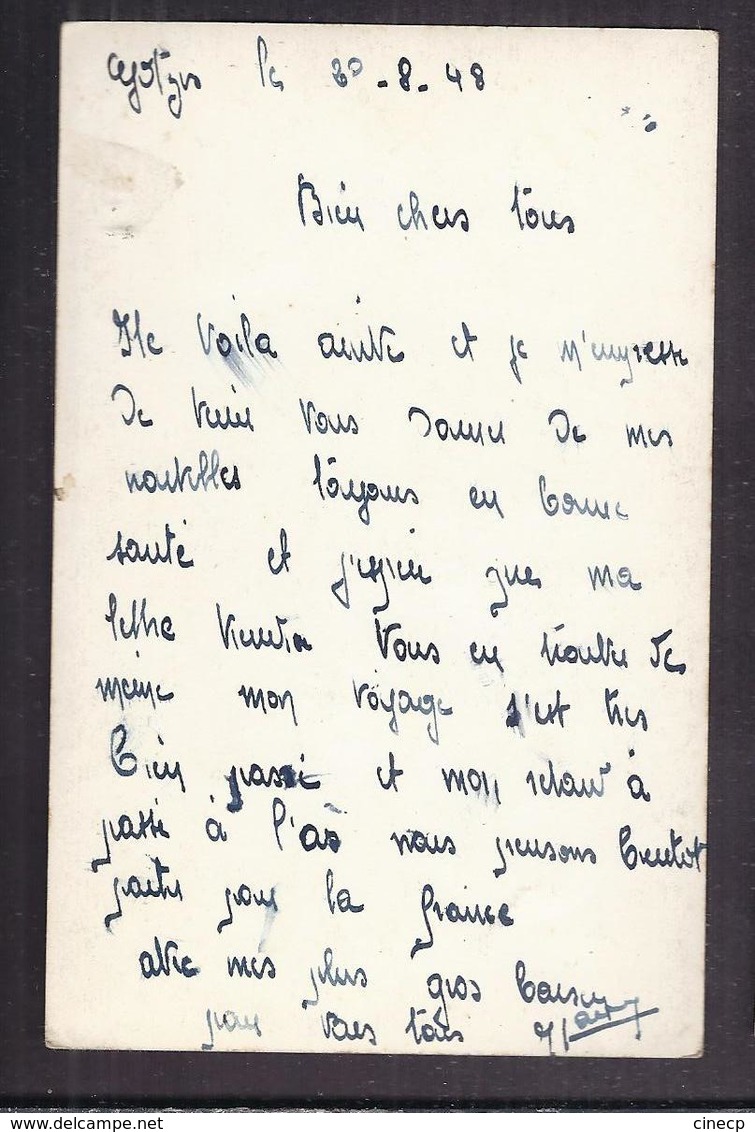 Götzis le 20-8-48
Bien chers tous
Me voila arrivé et je m'empresse
de venir vous donner de mes
nouvelles toujours en bonne
santé et j'espère que ma
lettre viendra vous en trouver de
même mon voyage s'est très
bien passé et mon retard à
passé à l'as nous pensons bientot
partir pour la France
avec mes plus gros baisers
pour vous tous
cinecp